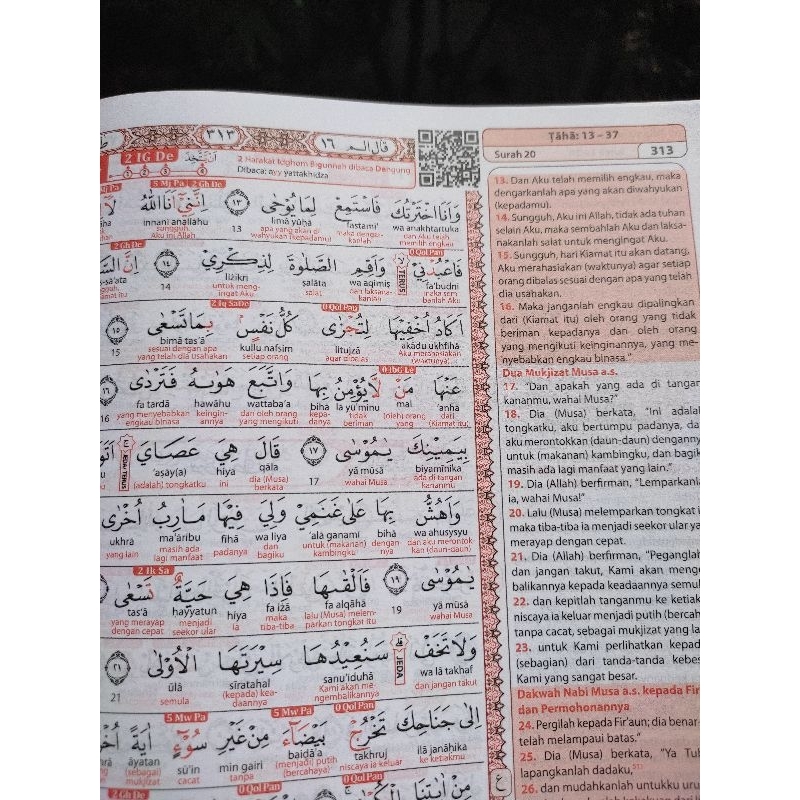 قال الم ١٦
٣١٣
2 IG De
2 Harakat Idghom Bigunnah dibaca Dengung
Dibaca: ayy yattakhidza
5 Mj Pa 2 Gh De
وَاَنَا اخْتَرْتُكَ فَاسْتَمِعْ لِمَا يُوْحٰى ١٣ اِنَّنِيْٓ اَنَا اللّٰهُ لَآ
wa anakhtartuka fastami' limā yūḥā 13 innanī anallāhu
dan Aku telah memilih engkau maka dengarkanlah apa yang akan di wahyukan (kepadamu) sungguh, Aku ini Allah
2 Gh De 0 Qol Pan
فَاعْبُدْنِيْ وَاَقِمِ الصَّلٰوةَ لِذِكْرِيْ ١٤ اِنَّ
fa'budnī wa aqimiṣ ṣalāta liżikrī 14
maka sembahlah Aku dan laksanakanlah salat untuk mengingat Aku
TERUS
2 Iq SaDe 0 Qol Pan
اَكَادُ اُخْفِيْهَا لِتُجْزٰى كُلُّ نَفْسٍ بِمَا تَسْعٰى ١٥
akādu ukhfīhā litujzā kullu nafsim bimā tas'ā 15
Aku merahasiakan (waktunya) agar dibalas setiap orang sesuai dengan apa yang telah dia usahakan
0 IbG Le
عَنْهَا مَنْ لَّا يُؤْمِنُ بِهَا وَاتَّبَعَ هَوٰىهُ فَتَرْدٰى ١٦
'anhā mal lā yu'minu bihā wattaba'a hawāhu fa tardā 16
dari (Kiamat itu) (oleh) orang yang tidak beriman kepadanya dan oleh orang yang mengikuti keinginannya yang menyebabkan engkau binasa
بِيَمِيْنِكَ يٰمُوْسٰى ١٧ قَالَ هِيَ عَصَايَ
biyamīnika yā mūsā 17 qāla hiya 'aṣāy(a)
ada di tangan kananmu wahai Musa dia (Musa) berkata ini (adalah) tongkatku
وَاَهُشُّ بِهَا عَلٰى غَنَمِيْ وَلِيَ فِيْهَا مَاٰرِبُ اُخْرٰى
wa ahusysyu bihā 'alā ganamī wa liya fīhā ma'āribu ukhrā
dan aku merontokkan (daun-daun) dengannya untuk (makanan) kambingku dan bagiku padanya masih ada lagi manfaat yang lain
2 Ik Sa
يٰمُوْسٰى ١٩ فَاَلْقٰىهَا فَاِذَا هِيَ حَيَّةٌ تَسْعٰى
yā mūsā 19 fa alqāhā fa iżā hiya ḥayyatun tas'ā
wahai Musa lalu (Musa) melemparkan tongkat itu maka tiba-tiba ia menjadi seekor ular yang merayap dengan cepat
وَلَا تَخَفْ سَنُعِيْدُهَا سِيْرَتَهَا الْاُوْلٰى ٢١
wa lā takhaf sanu'īduhā sīratahal ūlā 21
dan jangan takut Kami akan mengembalikannya (kepada) keadaannya semula
JEDA
5 Mw Pa 5 Mw Pa 0 Qol Pan
اِلٰى جَنَاحِكَ تَخْرُجْ بَيْضَاۤءَ مِنْ غَيْرِ سُوْۤءٍ اٰيَةً
ilā janāḥika takhruj baiḍā'a min gairi sū'in āyatan
ke ketiakmu niscaya ia keluar (menjadi) putih (bercahaya) tanpa cacat (sebagai) mukjizat
2 Gh De 0 Qol Pan 0 Qol Pan
مِنْ اٰيٰتِنَا
Ṭāhā: 13 – 37
Surah 20 313
13. Dan Aku telah memilih engkau, maka
dengarkanlah apa yang akan diwahyukan
(kepadamu).
14. Sungguh, Aku ini Allah, tidak ada tuhan
selain Aku, maka sembahlah Aku dan laksa-
nakanlah salat untuk mengingat Aku.
15. Sungguh, hari Kiamat itu akan datang,
Aku merahasiakan (waktunya) agar setiap
orang dibalas sesuai dengan apa yang telah
dia usahakan.
16. Maka janganlah engkau dipalingkan
dari (Kiamat itu) oleh orang yang tidak
beriman kepadanya dan oleh orang
yang mengikuti keinginannya, yang me-
nyebabkan engkau binasa."
Dua Mukjizat Musa a.s.
17. "Dan apakah yang ada di tangan
kananmu, wahai Musa?"
18. Dia (Musa) berkata, "Ini adalah
tongkatku, aku bertumpu padanya, dan
aku merontokkan (daun-daun) dengannya
untuk (makanan) kambingku, dan bagiku
masih ada lagi manfaat yang lain."
19. Dia (Allah) berfirman, "Lemparkanlah
ia, wahai Musa!"
20. Lalu (Musa) melemparkan tongkat i
maka tiba-tiba ia menjadi seekor ular ya
merayap dengan cepat.
21. Dia (Allah) berfirman, "Peganglah
dan jangan takut, Kami akan menge
balikannya kepada keadaannya semul
22. dan kepitlah tanganmu ke ketiak
niscaya ia keluar menjadi putih (bercah
tanpa cacat, sebagai mukjizat yang la
23. untuk Kami perlihatkan kepad
(sebagian) dari tanda-tanda kebes
Kami yang sangat besar.
Dakwah Nabi Musa a.s. kepada Fir
dan Permohonannya
24. Pergilah kepada Fir'aun; dia benar
telah melampaui batas."
25. Dia (Musa) berkata, "Ya Tuh
lapangkanlah dadaku,
26. dan mudahkanlah untukku uru